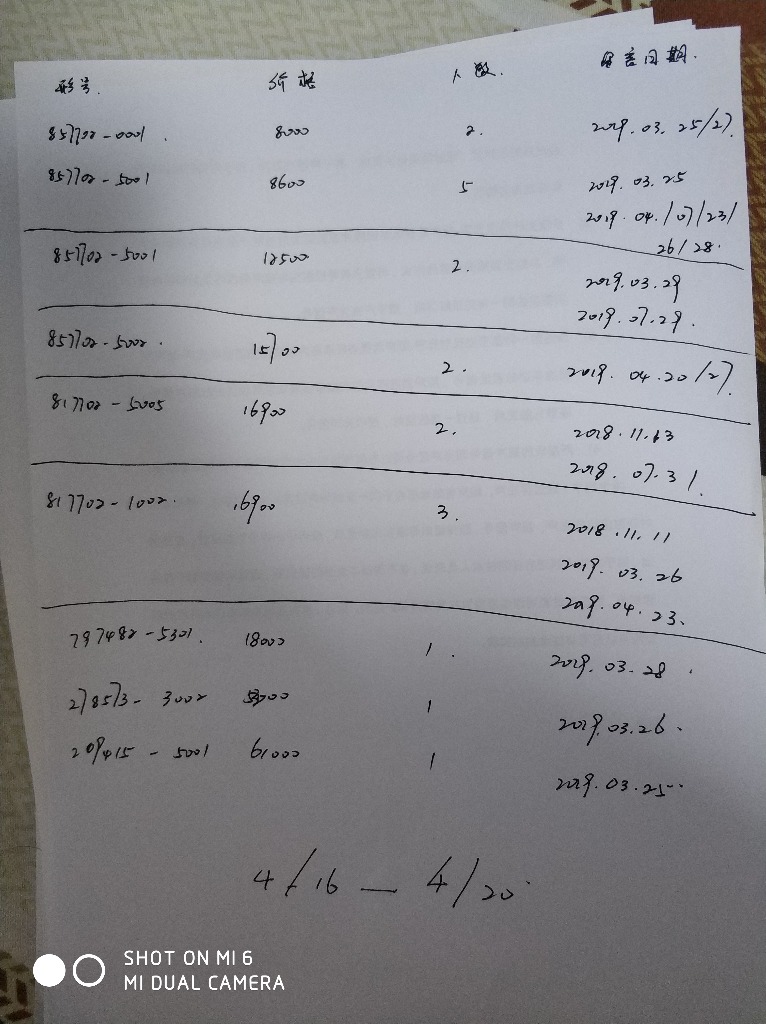 型号. 价格 人数. 留言日期.
857702-0001. 8000 2. 2019.03.25/27.
857702-5001 8600 5 2019.03.25
2019.04./07/23/
26/28.
857702-5001 12500 2. 2019.03.29
2019.07.29.
857702-5002. 15700 2. 2019.04.20/27.
817702-5005 16900 2. 2018.11.13
2018.07.31.
817702-1002. 16900 3. 2018.11.11
2019.03.26
2019.04.23.
797482-5301. 18000 1. 2019.03.28.
278573-3002 1 2019.03.26.
209415-5001 61000 1 2019.03.25..
4/16—4/20.
SHOT ON MI 6
MI DUAL CAMERA